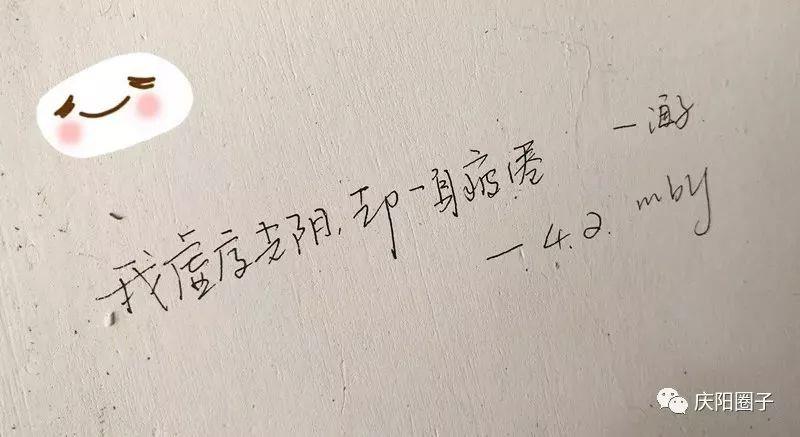 我虚度光阴,却一身疲惫
一.4.2. mby
庆阳圈子